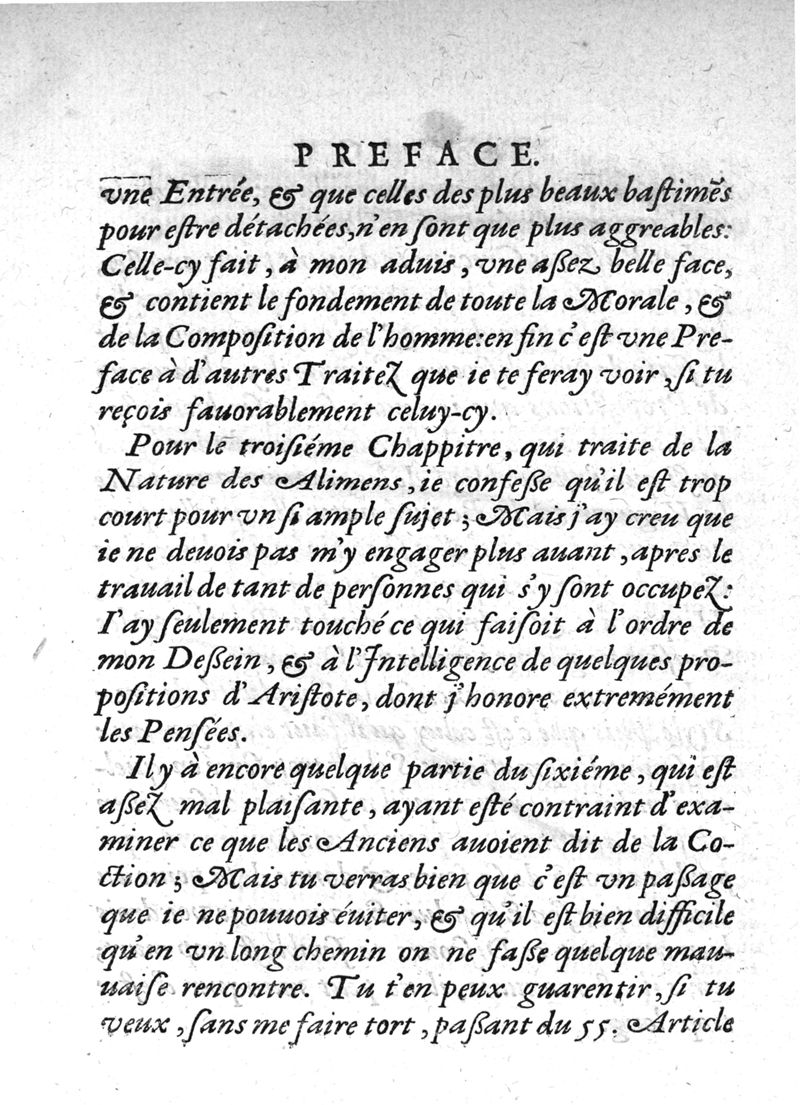 PREFACE.
vne Entrée, & que celles des plus beaux bastimẽs
pour estre détachées, n'en sont que plus aggreables:
Celle-cy fait, à mon aduis, vne aßez belle face,
& contient le fondement de toute la Morale, &
de la Composition de l'homme: en fin c'est vne Pre-
face à d'autres Traitez que ie te feray voir, si tu
reçois fauorablement celuy-cy.
Pour le troisiéme Chappitre, qui traite de la
Nature des Alimens, ie confeße qu'il est trop
court pour vn si ample sujet; Mais j'ay creu que
ie ne deuois pas m'y engager plus auant, apres le
trauail de tant de personnes qui s'y sont occupez:
I'ay seulement touché ce qui faisoit à l'ordre de
mon Deßein, & à l'Intelligence de quelques pro-
positions d'Aristote, dont j'honore extremément
les Pensées.
Il y à encore quelque partie du sixiéme, qui est
aßez mal plaisante, ayant esté contraint d'exa-
miner ce que les Anciens auoient dit de la Co-
ction; Mais tu verras bien que c'est vn paßage
que ie ne pouuois éuiter, & qu'il est bien difficile
qu'en vn long chemin on ne faße quelque mau-
uaise rencontre. Tu t'en peux guarentir, si tu
veux, sans me faire tort, paßant du 55. Article